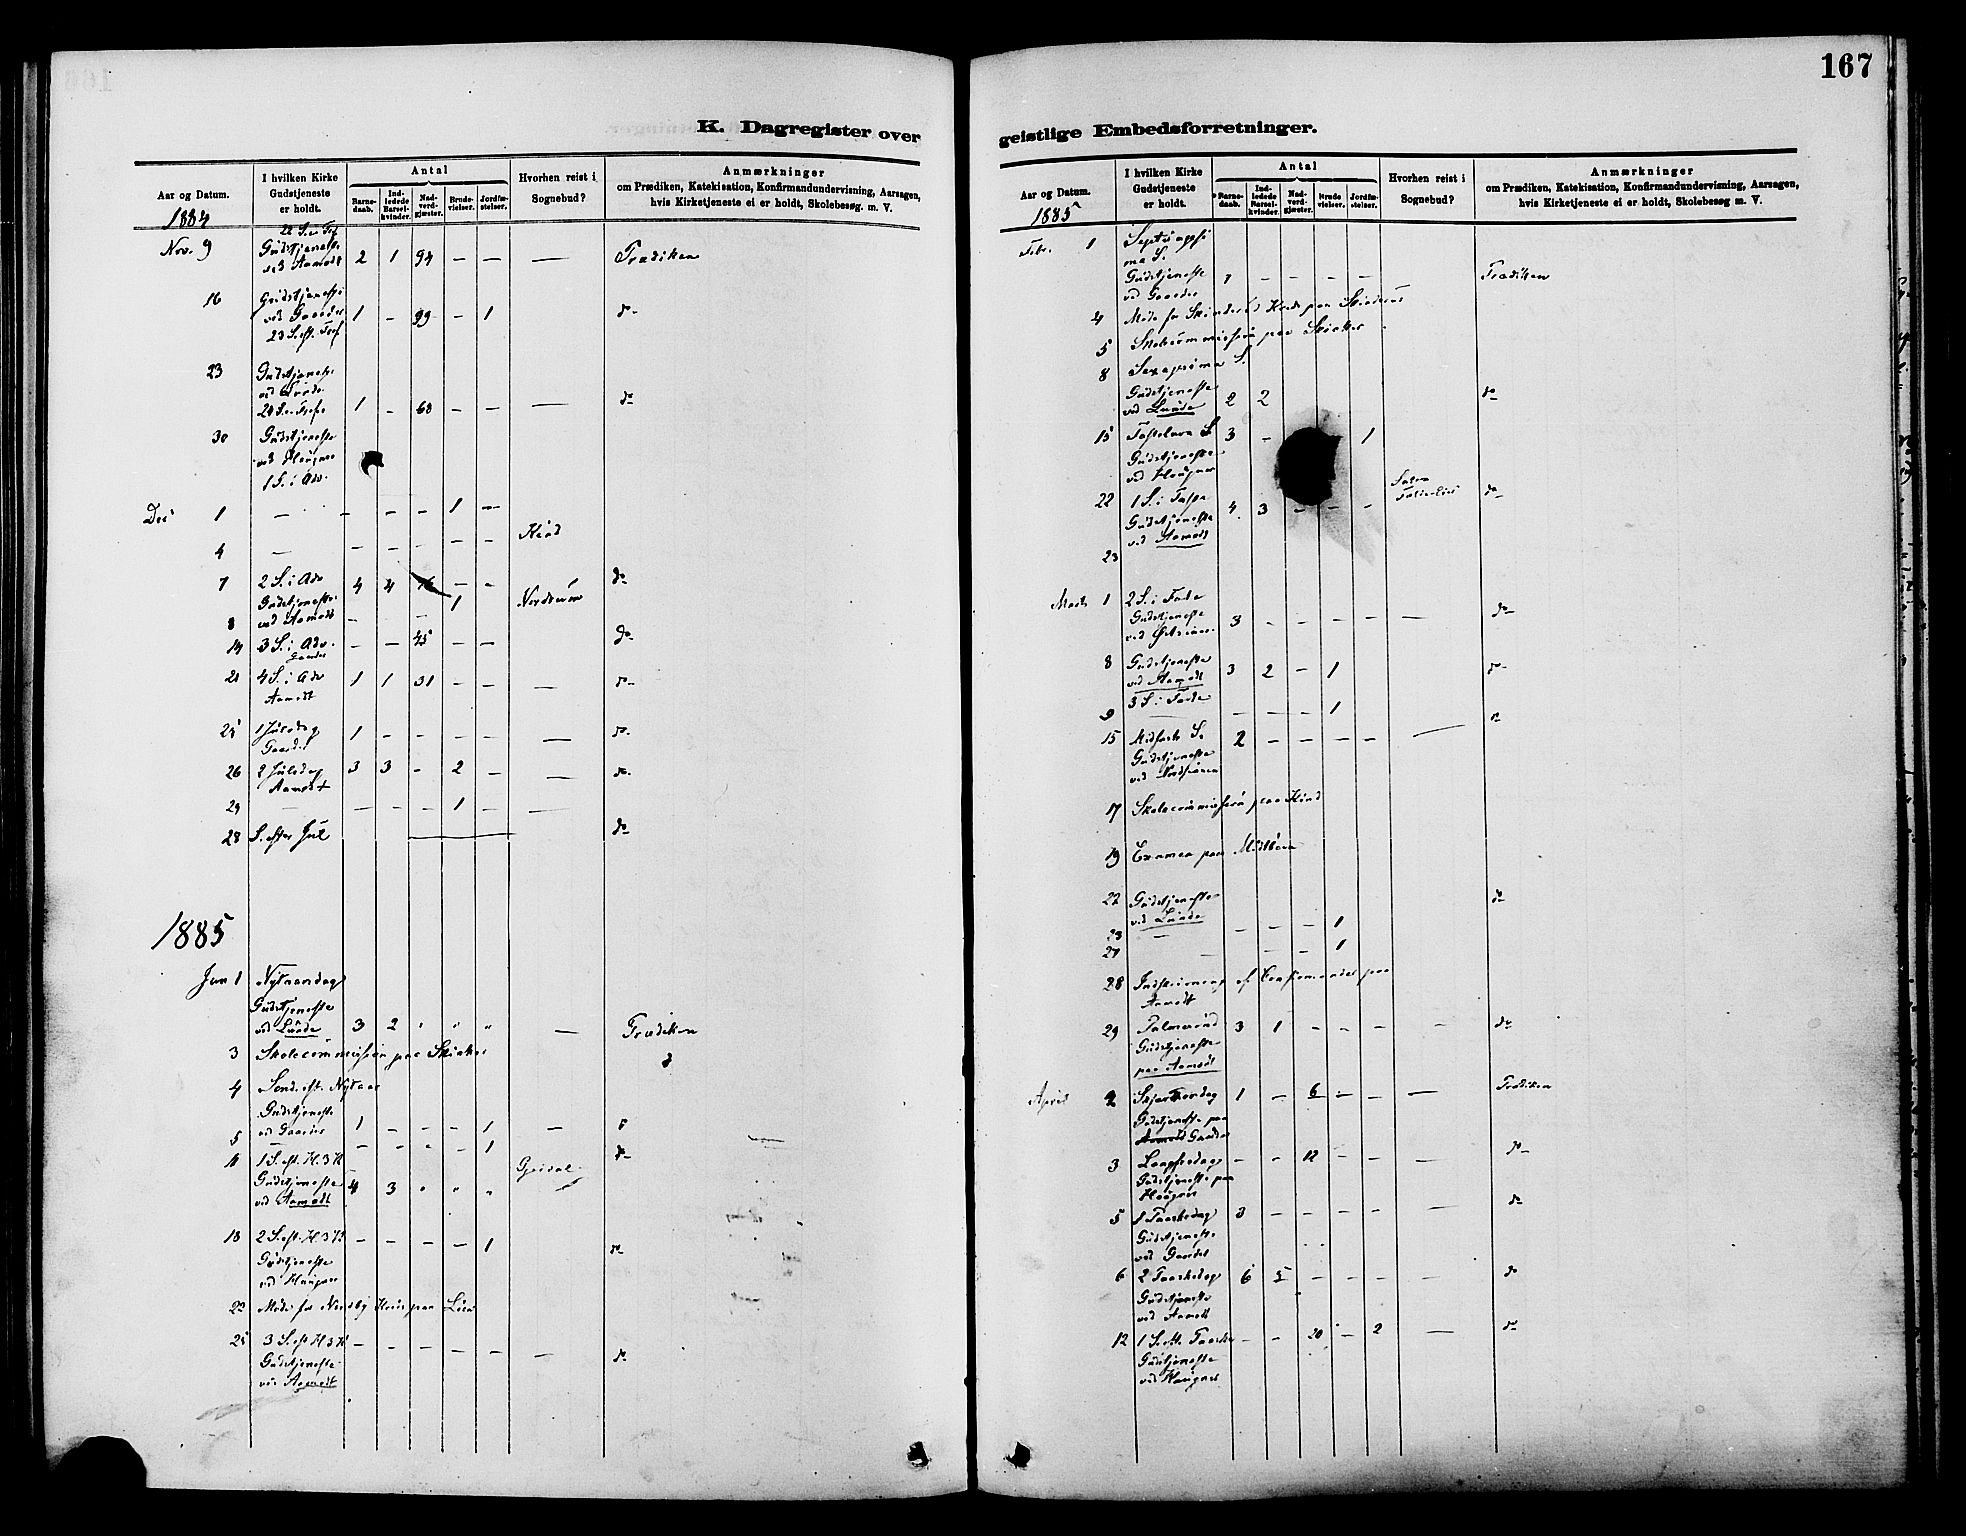 167
K. Dagregister over
geistlige Embedsforretninger.
Aar og Datum.
I hvilken Kirke Gudstjeneste er holdt.
Antal
Barnedaab.
Indledede Barselkvinder.
Nadverdgjæster.
Brudevielser.
Jordfæstelser.
Hvorhen reist i Sognebud?
Anmærkninger
om Prædiken, Katekisation, Konfirmandundervisning, Aarsagen,
hvis Kirketjeneste ei er holdt, Skolebesøg m. V.
1884
22 S. e. Tref
Nov. 9 Gudstjeneste
ved Aamodt 2 1 94 — — — Prædiken
16 Gudstjeneste
ved Gaarder 1 - 99 - 1 do
23 S. eft. Tref
23 Gudstjeneste
ved
24 S. e. Trefo 1 - 68 - - — do
30 Gudstjeneste
ved Haugner
1 S. i Adv.
Dec 1 — - - - 1 -
4 — - - - - -
7 2 S. i Adv 4 4 - - do
Gudstjeneste
8 ved Aamodt - - 1
14 3 S. i Adv. - - 45 - - do
Gaarder
21 4 S. i Adv 1 1 31 - - — do
Aamodt
25 1 Juledag 1 - - - - — do
26 2 Juledag 3 3 - 2 - — do
Aamodt
29 — - - - 1 - —
28 S. efter Jul do
1885
Jan 1 Nytaarsdag
Gudstjeneste
ved Lunde 3 2 " " " — Prædiken
3 Skolecommission paa
4 Sønd. eft. Nytaar
Gudstjeneste
ved Gaarder 1 - - - 1 —
5 - - - - 1
11 1 S. eft. H. 3 K
Gudstjeneste
ved Aamodt 4 3 " " " do
18 2 S. eft. H. 3 K - - - - 1 do
Gudstjeneste
ved Haugner
22 Møde for
25 3 S. eft. H 3 K - - - - - — do
Gudstjeneste
ved Aamodt
Aar og Datum.
I hvilken Kirke Gudstjeneste er holdt.
Antal
Barnedaab.
Indledede Barselkvinder.
Nadverdgjæster.
Brudevielser.
Jordfæstelser.
Hvorhen reist i Sognebud?
Anmærkninger
om Prædiken, Katekisation, Konfirmandundervisning, Aarsagen,
hvis Kirketjeneste ei er holdt, Skolebesøg m. V.
1885
Febr. 1
Gudstjeneste
ved Gaarder - - - - Prædiken
4 Møde for
5 Skolecommission paa
8 Sexagesima S.
Gudstjeneste
ved Lunde 2 2 do
15 Fastelavn S 3 - 1
Gudstjeneste
ved Haugner
22 1 S. i Faste 4 3 - - - do
Gudstjeneste
ved Aamodt
23
Marts 1 2 S. i Faste
Gudstjeneste
ved 3 - - - - — do
8 Gudstjeneste
ved Aamodt 3 2 - 1 do
3 S. i Faste
9 - - - 1
15 Midfaste S. 2 - - - - —
Gudstjeneste
ved
17 Skolecommission paa
19 Examen paa
22 Gudstjeneste
ved Lunde - - - 1 do
23 —
27 - - - 1
28 Indskrivning af Confirmander paa
Aamodt
29 Palmesønd 3 1 - - - - do
Gudstjeneste
paa Aamodt
April 2 Skjærtorsdag 1 - 6 - - — Prædiken
Gudstjeneste paa
Gaarder
3 Langfredag - - 12 - - - do
Gudstjeneste paa
Haugner
5 1 Paaskedag 3 - - - - — do
Gudstjeneste
ved Gaarder
6 2 Paaskedag 6 5 - - - - do
Gudstjeneste
ved Aamodt
12 1 S. eft. Paaske - - 20 - 2 — do
Gudstjeneste
ved Haugner